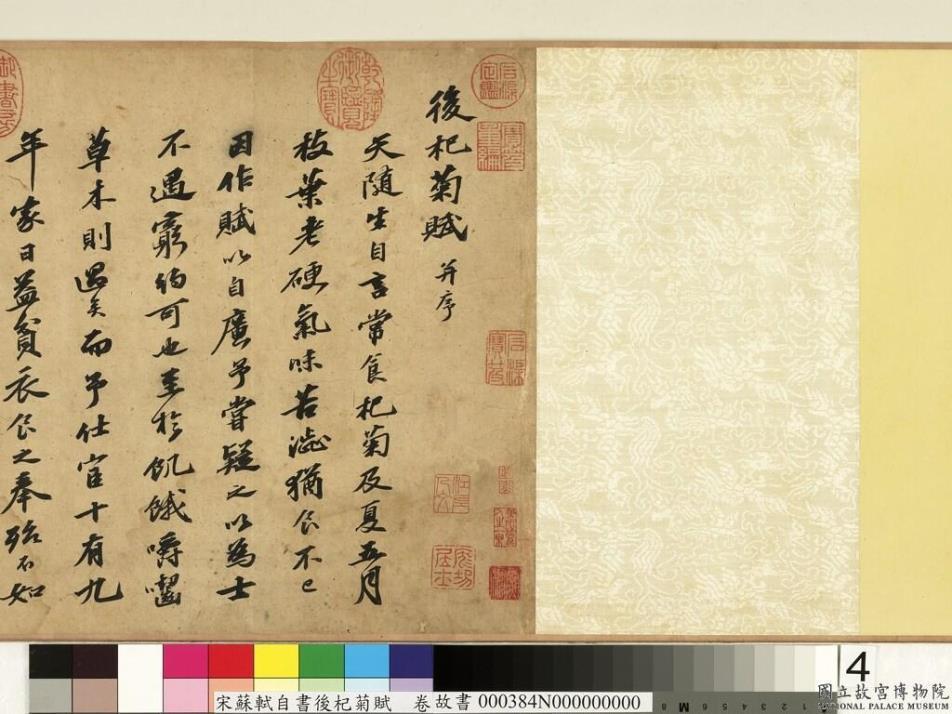 後杞菊賦并序
天隨生自言常食杞菊及夏五月
枝葉老硬氣味苦澁猶食不已
因作賦以自廣予嘗疑之以為士
不遇窮約可也至於飢餓嚼齧
草木則過矣而予仕宦十有九
年家日益貧衣食之奉殆不如
4
國立故宮博物院
NATIONAL PALACE MUSEUM
宋蘇軾自書後杞菊賦 卷故書 000384N000000000